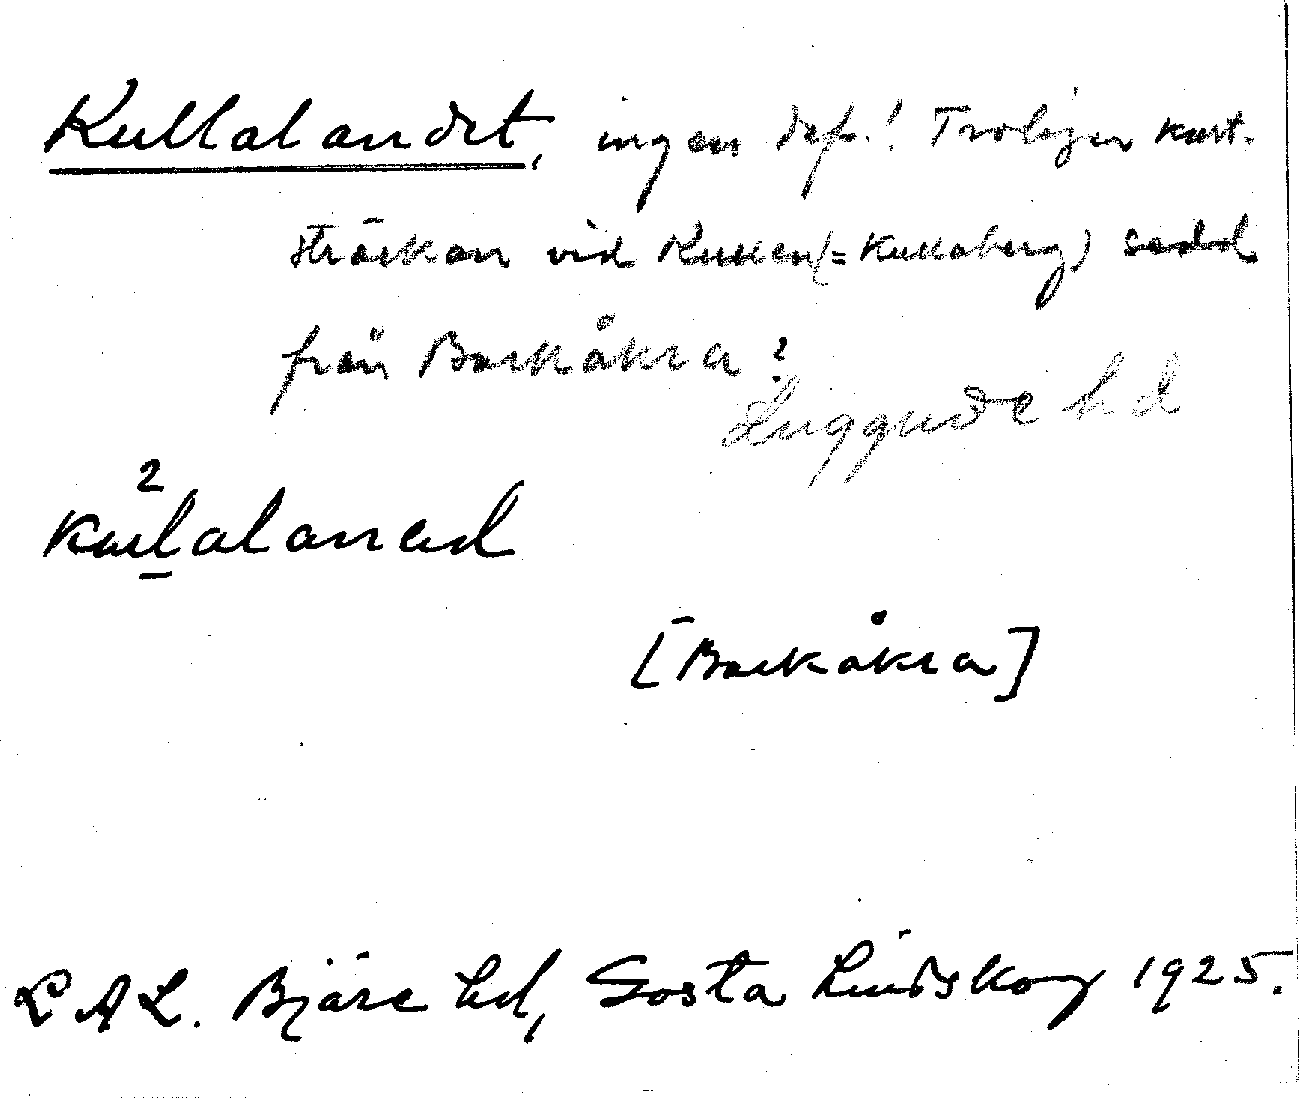 Kullalandet, ingen def.! Troligen kust-
sträckan vid Kullen (= Kullaberg) sedd
från Barkåkra?
Luggude hd
2
[Barkåkra]
LAL. Bjäre hd, Gösta Lindskog 1925.